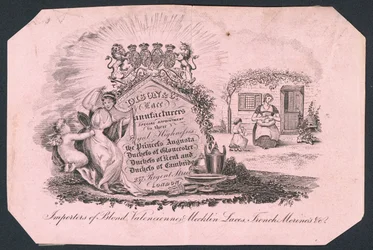 DISON & Co.
Lace
Manufacturers
BY SPECIAL APPOINTMENT
to their
Royal Highnesses
the Princess Augusta,
Duchess of Gloucester,
Duchess of Kent and
Duchess of Cambridge
237 Regent Street
LONDON.
Importers of Blond, Valencienne, Mechlin Laces, French Merinos &c.